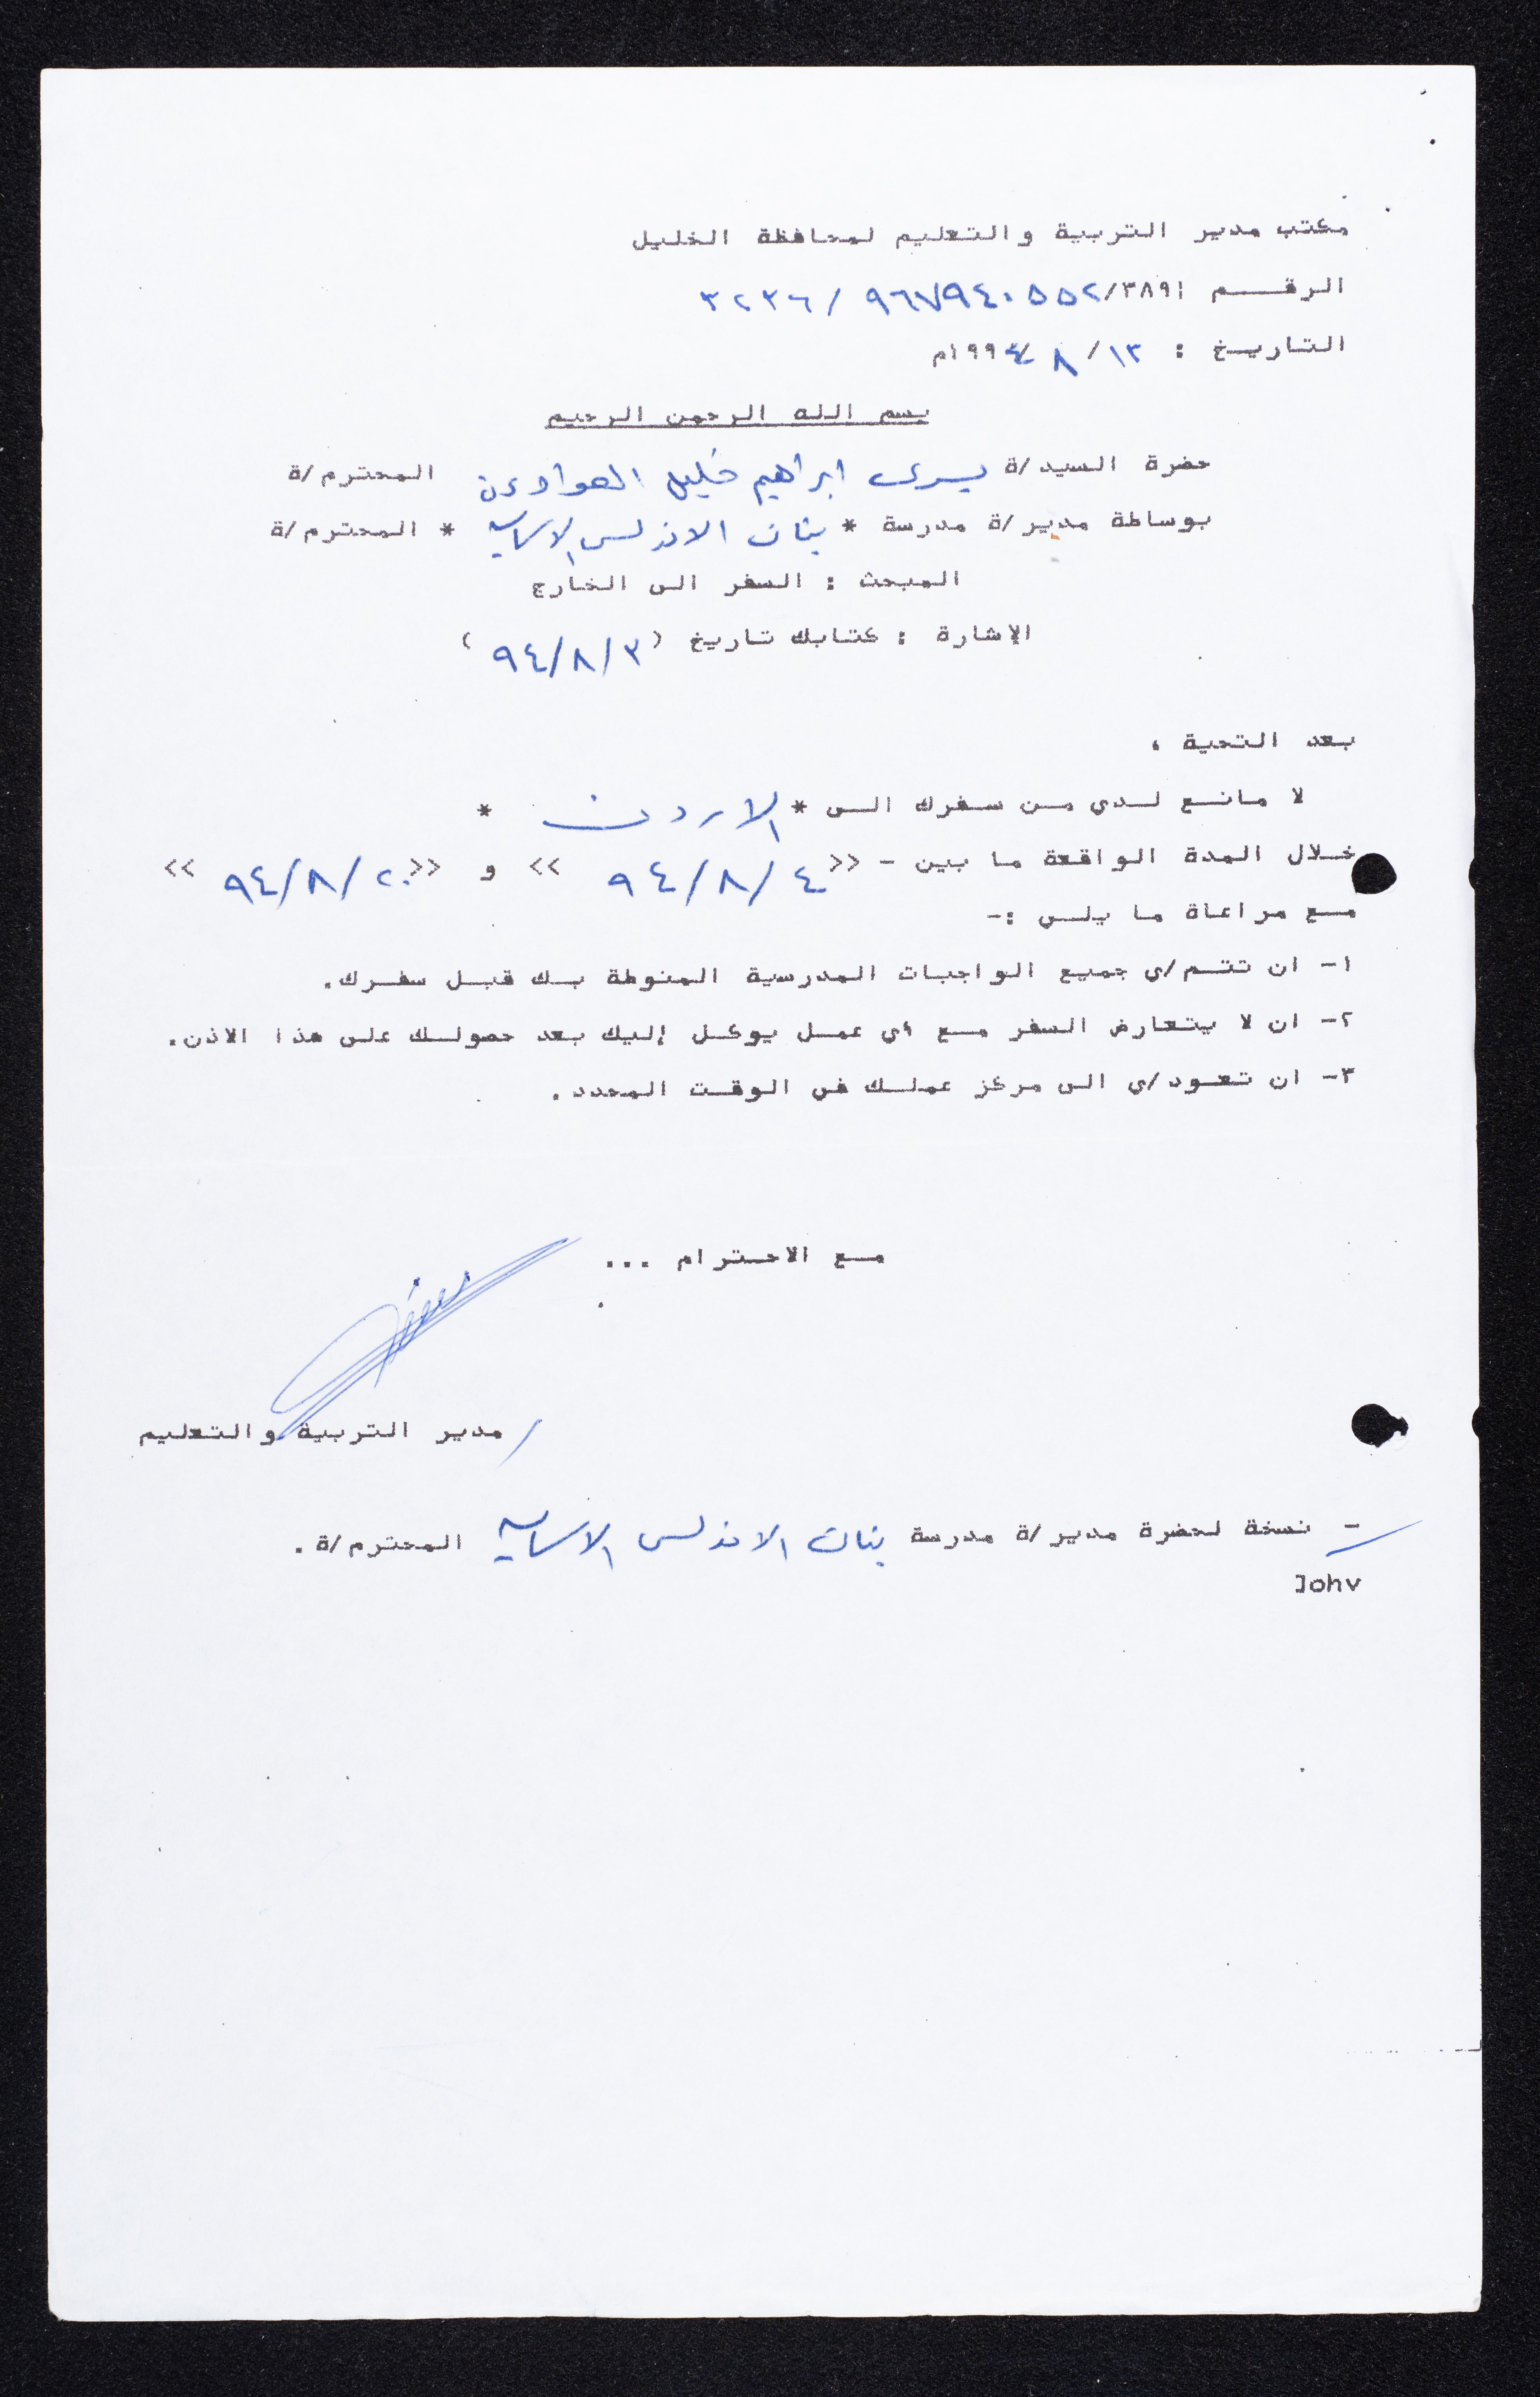 مكتب مدير التربية والتعليم لمحافظة الخليل
الرقــم ٣٨٩١/ ٩٦٧٩٤٠٥٥٢ / ٣٢٣٦
التاريـخ : ١٣/ ٨ /١٩٩٤م
بسم الله الرحمن الرحيم
حضرة السيد/ة يسرى ابراهيم خليل العواودة المحترم/ة
بوساطة مدير/ة مدرسة * بنات الاندلس الاساسية * المحترم/ة
المبحث : السفر الى الخارج
الإشارة : كتابك تاريخ ( ٩٤/٨/٣ )
بعد التحية ،
لا مانـع لـدي مـن سـفرك الـى * الاردن *
خـلال المدة الواقعة ما بين - << ٩٤/٨/٤ >> و << ٩٤/٨/٢٠ >>
مـع مراعاة ما يلـي :-
١- ان تتـم/ي جميع الواجبات المدرسية المنوطة بـك قبـل سفـرك.
٢- ان لا يتعارض السفر مـع أي عمـل يوكـل إليك بعد حصولـك على هذا الاذن.
٣- ان تعـود/ي الى مركز عملـك في الوقـت المحدد.
مـع الاحـترام ...
/ مدير التربية والتعليم
- نسخة لحضرة مدير/ة مدرسة بنات الاندلس الاساسية المحترم/ة.
Johv